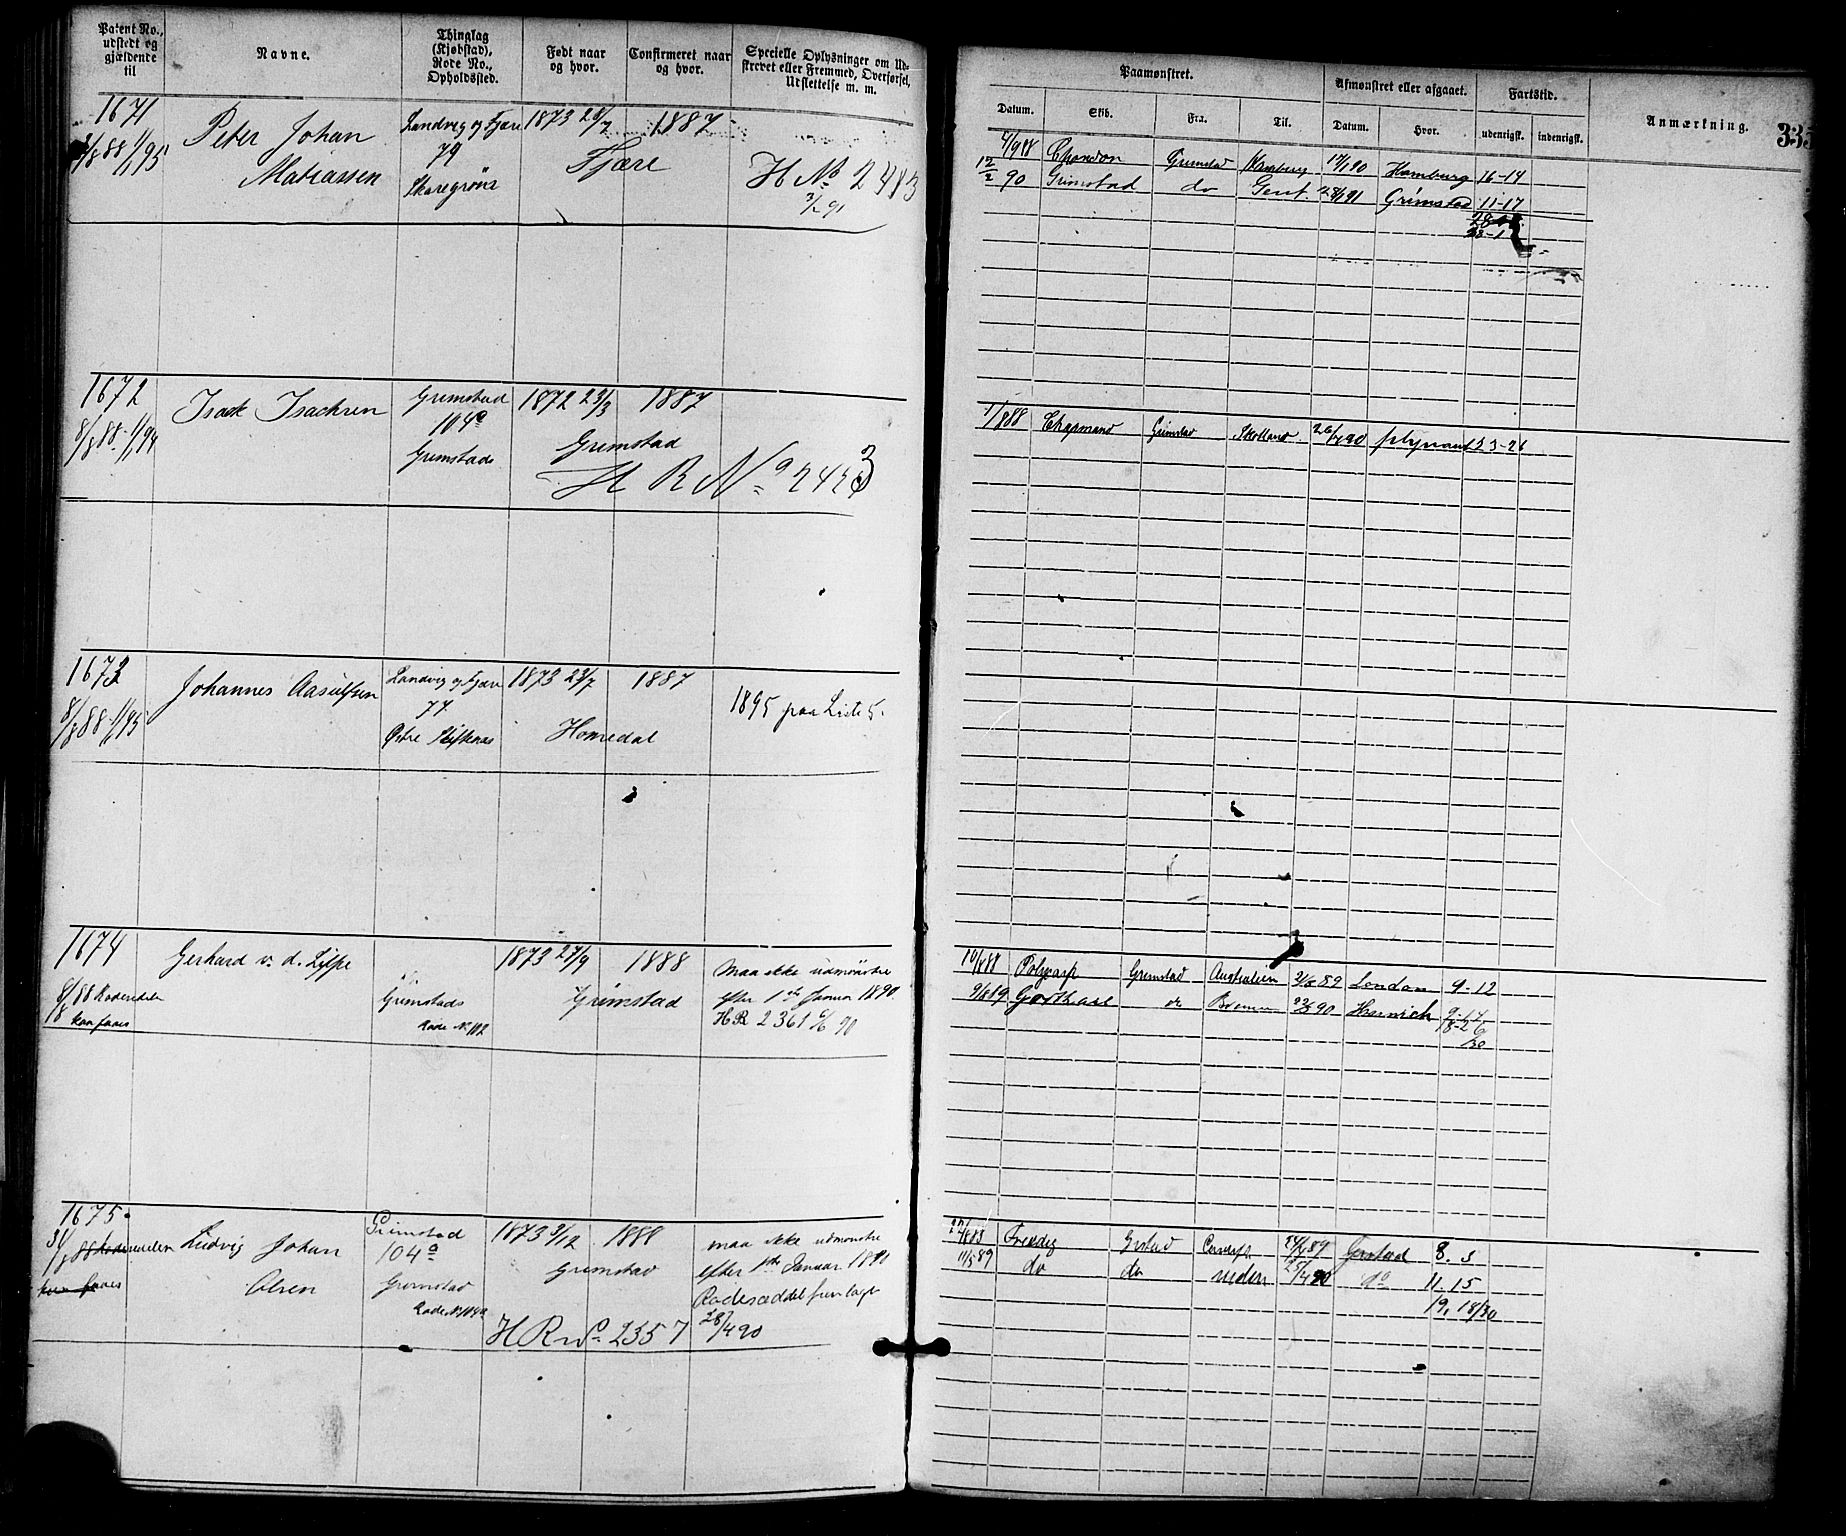 Patent No., udstedt og gjældende til
Navne.
Thinglag (Kjøbstad), Rode No., Opholdssted.
Født naar og hvor.
Confirmeret naar og hvor.
Specielle Oplysninger om Udskrevet eller Fremmed, Overførsel, Udslettelse m. m.
Paamønstret.
Afmønstret eller afgaaet.
Fartstid.
Anmærkning.
335
Datum.
Skib.
Fra.
Til.
Datum.
Hvor.
udenrigsk.
indenrigsk.
1671
Peter Johan
Matiassen
Landvig og Fjære
79
1873 28/7
Fjære
1887
H No 2483
3/2 91
4/9 88
Grimstad
17/1 90
Hamburg
16-14
12/2 90
Grimstad
do
Gent.
28/1 91
Grimstad
11-17
1672
8/8 88-1/1 94
Isak Isachsen
Grimstad
104a
Grimstad
1872 23/3
Grimstad
1887
H R No 2423
1/8 88
Chapmand
Grimstad
Skotland
26/7 90
plymouth
23-26
1673
8/8 88-1/1 95
Johannes Aasulfsen
Landvig og Fjære
77
Østre
1873 23/7
Homedal
1887
1895 paa Liste 5.
1674
8/8 88 Rodesedelen
Gerhard v. d. Lippe
Grimstads
Rode No 102
1873 27/9
Grimstad
1888
maa ikke udmønstre
efter 1ste Januar 1890
H R 2361 6/6 90
10/8 88
Polycarp
Grimstad
Australien
3/6 89
London
9-12
9/8 89
do
Bremen
Harwich
9-14
18-26
/30
1675.
31/8 88
Ludvig Johan
Olsen
Grimstad
104a
Grimstad
Rode No 104a
1873 3/12
Grimstad
1888
maa ikke udmønstre
efter 1ste Januar 1890
Rodeseddel fremlagt
28/4 90
H R No 2357
27/8 88
Grstad
24/1 89
Grstad
8. 3
11/5 89
do
do
25/4 90
do
11. 15
19, 18/30